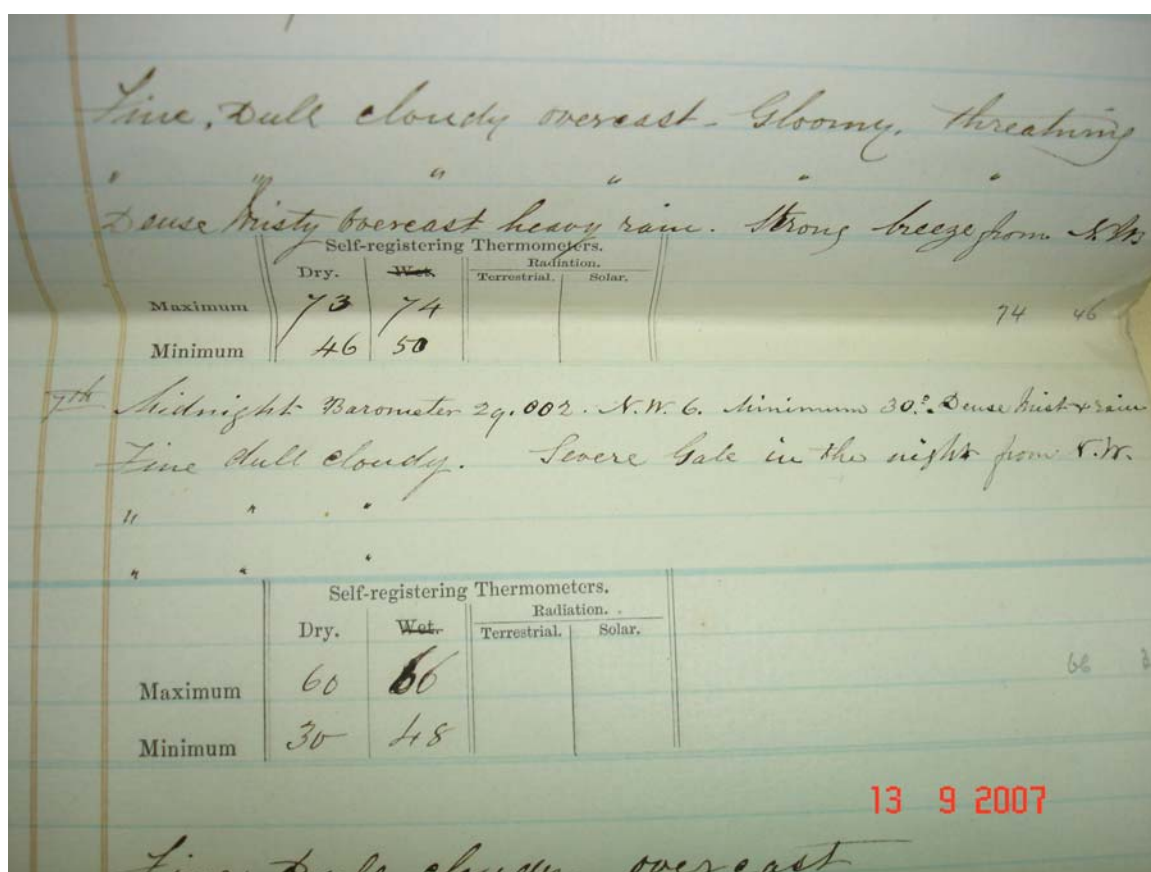 Fine, Dull cloudy overcast - Gloomy. Threatning
" " " " " "
Dense Misty Overcast heavy rain. Strong breeze from
Self-registering Thermometers.
Radiation.
Dry. Wet. Terrestrial. Solar.
Maximum 73 74
74 46
Minimum 46 50
7th Midnight Barometer 29.002. N.W. 6. Minimum 30°. Dense Mist & rain
Fine dull cloudy. Severe Gale in the night from N.W.
" " "
" " "
Self-registering Thermometers.
Radiation.
Dry. Wet. Terrestrial. Solar.
Maximum 60 66
66
Minimum 30 48
13 9 2007
Fine Dull cloudy overcast